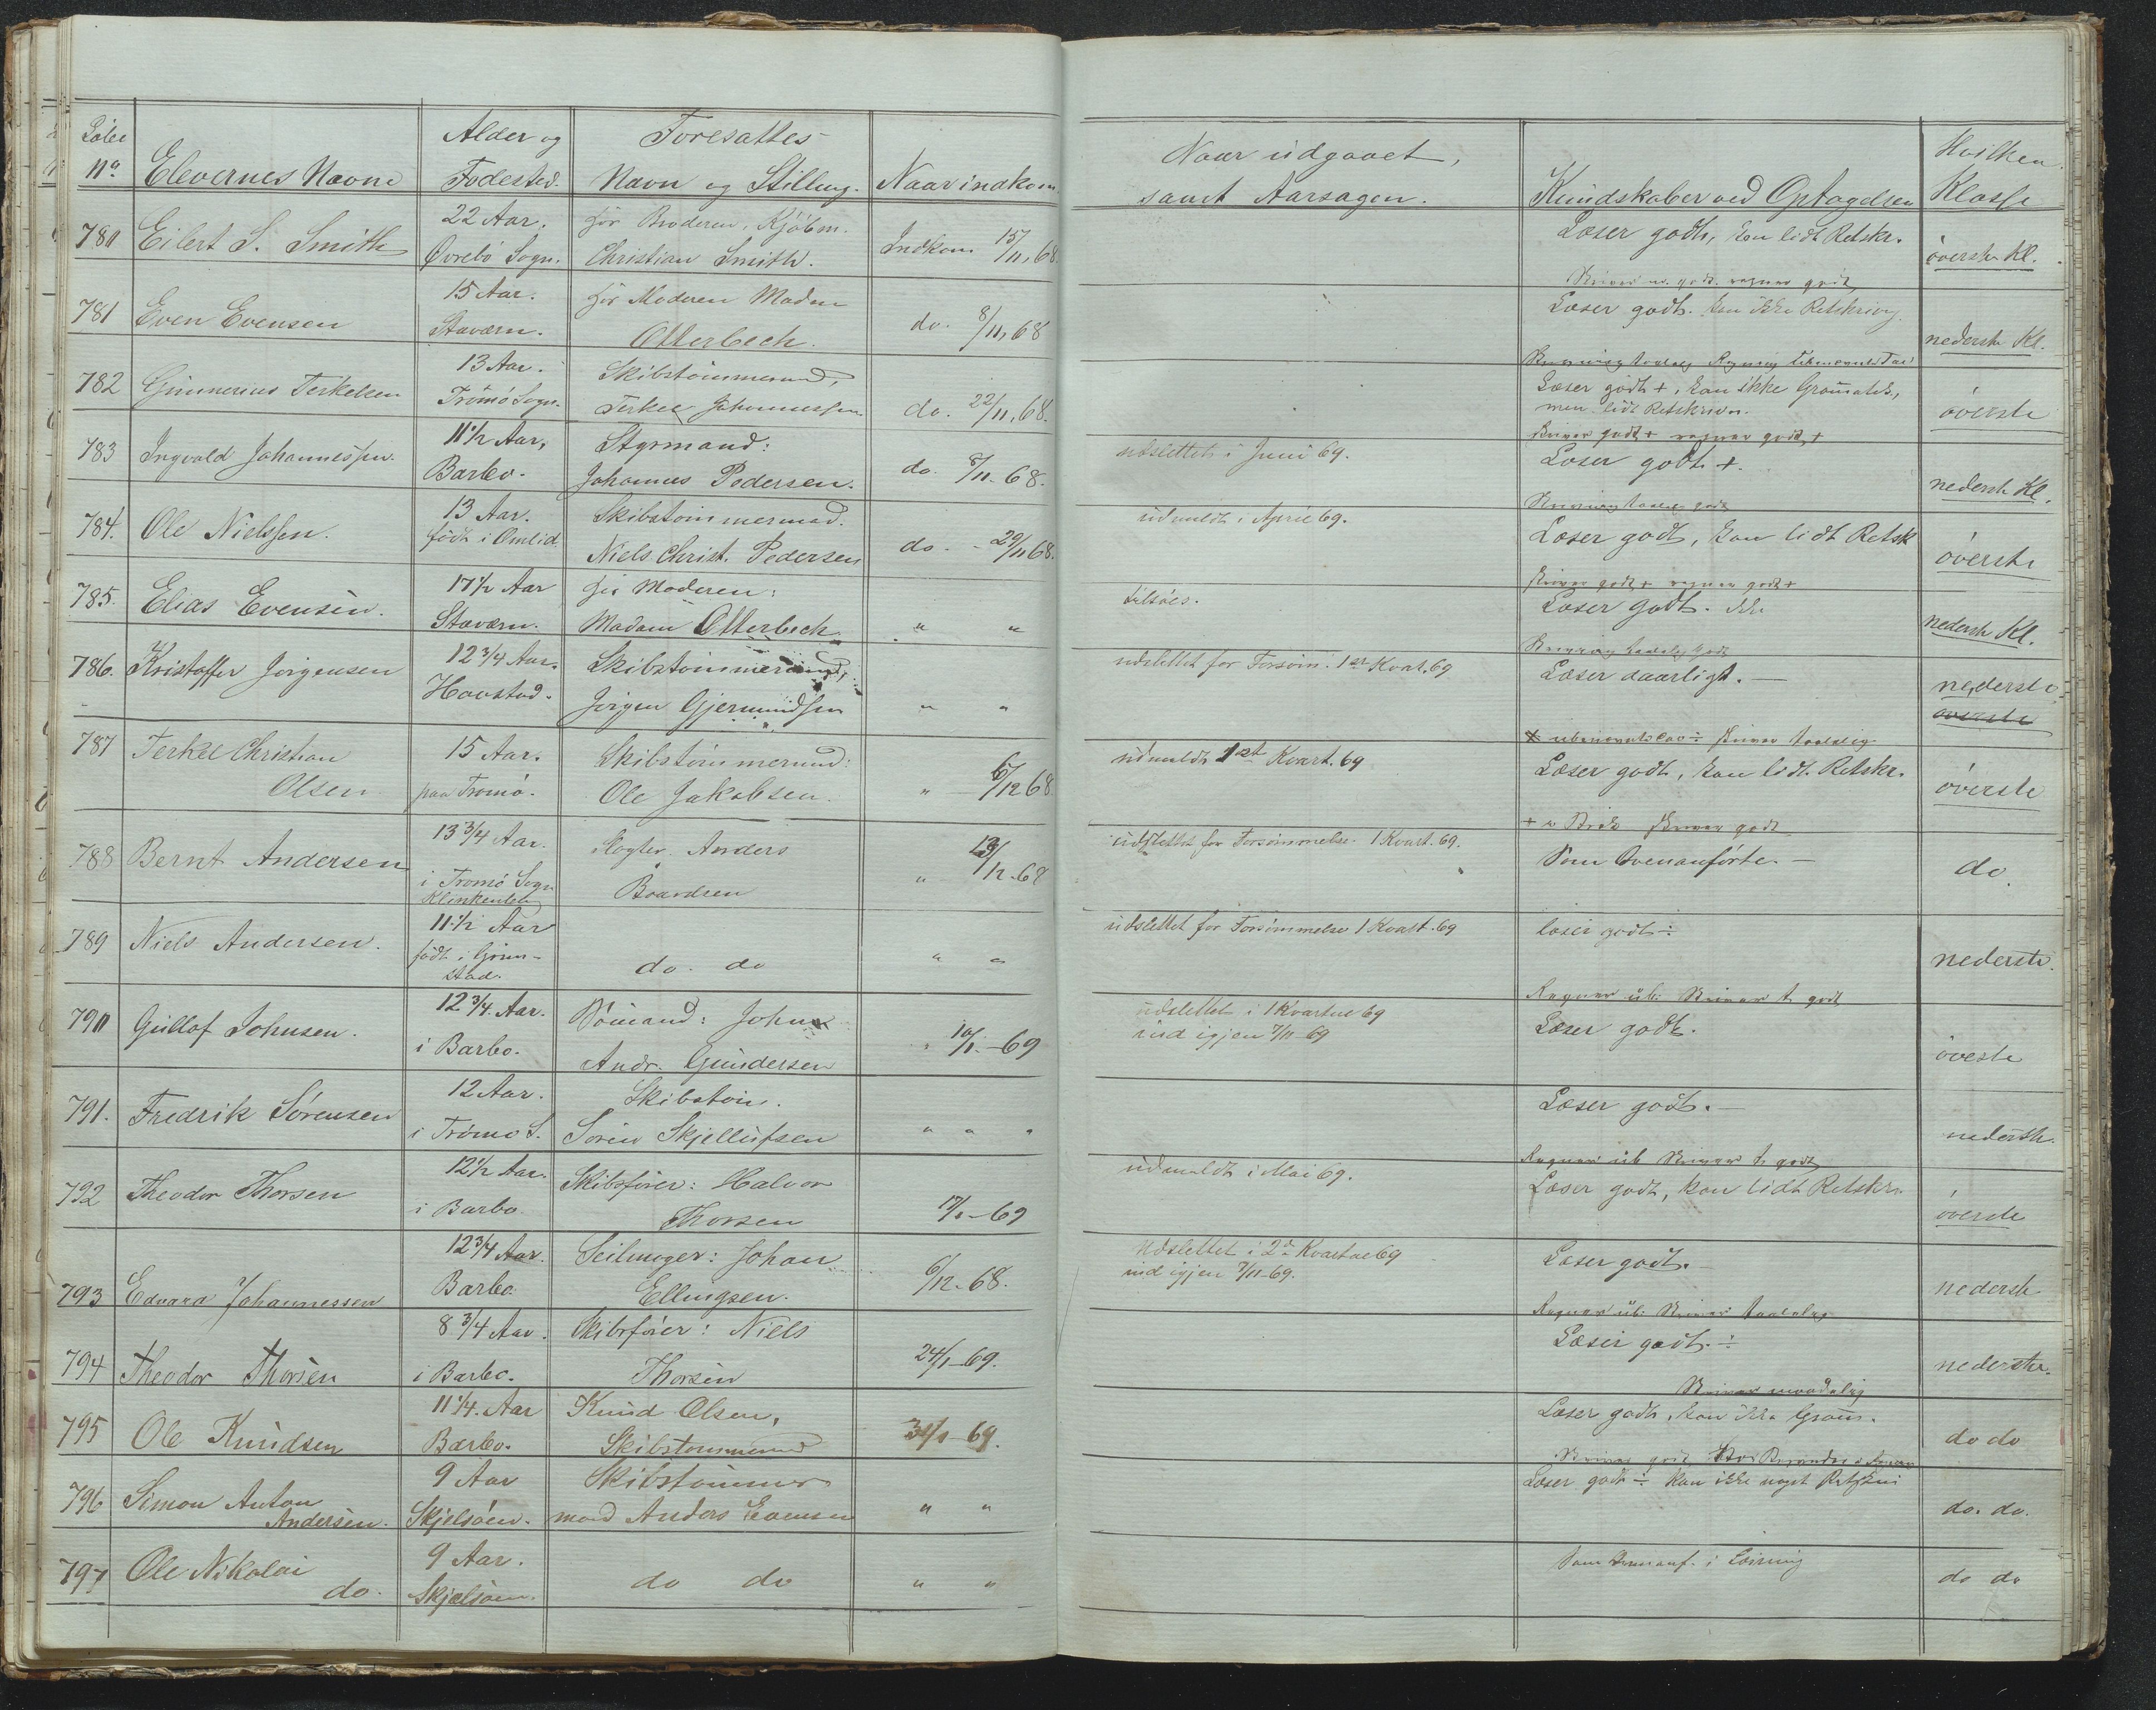 Löbe
No
Elevernes Navne
Alder og
Fodested.
Foresattes
Navn og Stilling.
Naar indkom
Naar udgaaet,
samt Aarsagen.
Kundskaber ved Optagelsen
Hvilken
Klasse
780 Eilert S. Smith
22 Aar.
Øvrebö Sogn.
for Broderen, Kjöbm.
Christian Smith.
Indkom. 15/11, 68.
Læser godt, kan lidt Retskr.
överste Kl.
781 Even Evensen
15 Aar.
Staværn.
for Moderen Madam
Otterbech.
do. 8/11, 68
Læser godt. kan ikke Retskrivg.
nederste Kl.
782 Gunnerius Terkelsen
13 Aar.
Trömö Sogn.
Skibstömmermd,
Terkel Johannessen
do. 22/11, 68.
Læser godt +, kan ikke Gramatik,
men lidt Retskrivn.
överste
skriver godt + regner godt +
783 Ingvald Johannessen.
11 1/2 Aar,
Barbo.
Styrmand:
Johannes Pedersen.
do. 8/11. 68.
udslettet i Juni 69.
Læser godt +.
nederste Kl.
784. Ole Nielssen.
13 Aar.
födt i Omlid.
Skibstömmermad.
Niels Christ. Pedersen
do. - 29/11 68.
udmeldt i April 69.
Læser godt, kan lidt Retsk
överste
skriver godt + regner godt +
785. Elias Evensen.
17 1/2 Aar
Staværn.
for Moderen:
Madam Otterbech.
" "
tilsöes.
Læser godt. ikke
nederste Kl.
786. Kristoffer Jörgensen
12 3/4 Aar.
Havstad.
Skibstömmermd,
Jörgen Gjermundsen
" "
udslettet for Forsöm. 1ste Kvart. 69
Læser daarligt. —
nederste
överste
787 Terkel Christian
Olsen
15 Aar.
paa Tromö.
Skibstömmermd:
Ole Jakobsen.
" 6/12 68.
udmeldt 1st Kvart. 69
Læser godt, kan lidt Retskr.
överste
788 Bernt Andersen
13 3/4 Aar.
i Tromö Sogn
Klinkenberg
Anders
Baardsen
" 13/12 68
udslettet for Forsömmelse 1 Kvart. 69.
Som Ovenanförte. —
do.
789 Niels Andersen.
11 1/2 Aar
födt i Grim-
stad.
do. do
" "
udslettet for Forsömmelse 1 Kvart. 69
læser godt ÷
nederste.
Regner üb. Skriver t. godt
790 Gullof Johnsen.
12 3/4. Aar.
i Barbo.
Sömand: John
Andr. Gundersen
" 10/1. - 69
udslettet i 1 Kvartal 69
ind igjen 7/11 69
Læser godt.
öveste
791. Fredrik Sörensen
12 Aar.
i Trömö S.
Skibstöm.
Sören Skjellufsen
" " "
Læser godt. —
nederste.
Regner üb Skriver t. godt
792 Theodor Thorsen
12 1/2 Aar.
i Barbo.
Skibsförer: Halvor
Thorsen
17/1 - 69
udmeldt i Mai 69.
Læser godt, kan lidt Retskr.
överste
793 Edvard Johannessen
12 3/4 Aar.
Barbo
Seilmager: Johan
Ellingsen.
6/12. 68.
Udslettet i 2d Kvartal 69
ind igjen 7/11-69.
Læser godt. —
nederste
Regner üb. Skriver taalelig
794 Theodor Thorsen
8 3/4 Aar.
i Barbo.
Skibsförer: Niels
Thorsen
24/1 - 69.
Læser godt. ÷
nederste.
Skriver maadelig
795 Ole Knudsen
11 1/4. Aar
Barbo.
Knud Olsen,
Skibstömmermd
31/1 - 69.
Læser godt, kan ikke Gram.
do do
796 Simon Anton
Andersen.
9 Aar
Skjelsöen.
Skibstömmer
mand Anders Evensen
" "
Læser godt ÷ kan ikke noget Retskri
do. do.
797 Ole Nikolai
do.
9 Aar.
Skjælsöen.
do do
" "
Som Ovenanf. i Læsning
do do